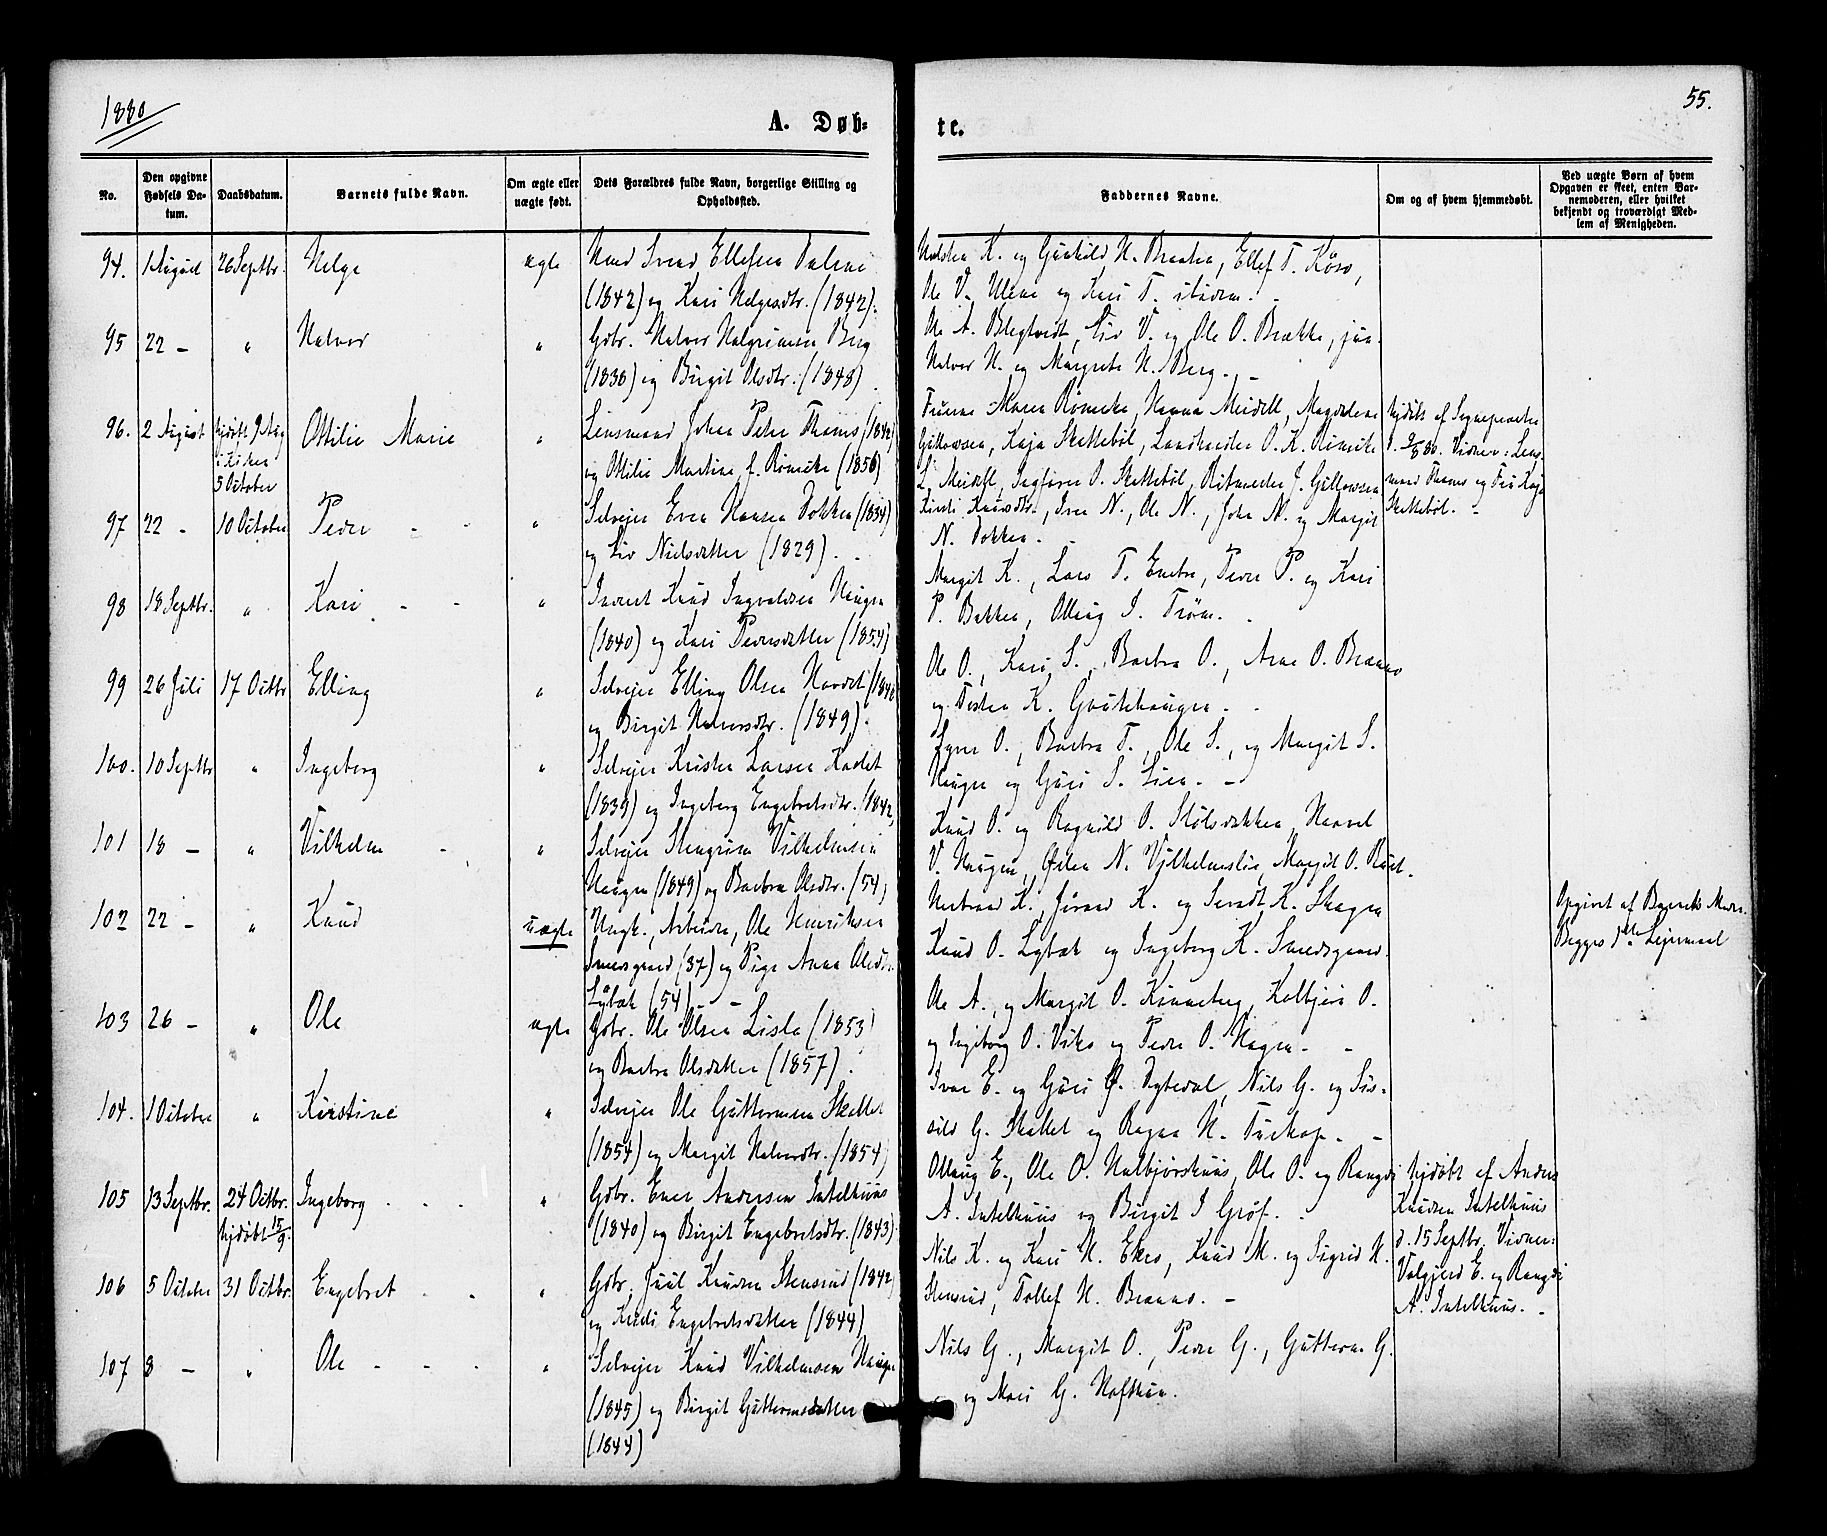 1880
55.
A. Døb-
te.
No.
Den opgivne Fødsels Da-tum.
Daabsdatum.
Barnets fulde Navn.
Om ægte eller uægte født.
Dets Forældres fulde Navn, borgerlige Stilling og Opholdssted.
Faddernes Navne.
Om og af hvem hjemmedøbt.
Ved uægte Børn af hvem Opgaven er skeet, enten Bar-nemoderen, eller hvilket bekjendt og troværdigt Med-lem af Menigheden.
94. 1 August 26 Septbr. Helge ægte Svend Ellefsen
(1842) og Kari Helgesdtr. (1842).
K. og Gunhild H. Braaten, Ellef T.
Ole V. og Kari T. ibidem.
95 22 – " Halvor " Gbr. Halvor Halgrimsen Berg
(1838) og Birgit Olsdtr. (1848).
Ole A. Blegtvedt, Liv V. og Ole O. Brække, jun.
Halvor H. og Margrete H. Berg. –
96. 2 August hjdøbt 9 Aug Ottilie Marie " Lensmand Johan Peter Thams (1842)
i Kirken
5 October
og Ottilie Martine f. Rømcke (1856)
Fruerne Maren Rømcke, Hanna Meidell, Magdalene
Gulowsen, Kaja Skattebøl, Landhandler O. K. Rømcke
L. Meidell, O. Skattebøl, Ritmester J. Gulowsen
hjdøbt af Sognepresten
d. 9/8 80. Vidner: Lens-
mand Thams og Frk Kaja
Skattebøl. –
97 22 – 10 October Peder " Selvejer Even Hansen Dokken (1834)
og Liv Nielsdatter (1829). –
Knudsdtr., Iver N., Ole N., John N. og Margit
N. Dokken. –
98 18 Septbr. " Kari " Knud Ingvaldsen Haugen
(1840) og Kari Pedersdatter (1854)
Margit K., Lars T. Peder P. og Kari
P. Bakken, Ollaug I.
99 26 Juli 17 Octbr Elling " Selvejer Elling Olsen
og Birgit Halvorsdtr. (1849).
Ole O., Kari S., Barbra O., Arne O.
og K.
100. 10 Septbr " Ingeborg " Selvejer Kristen Larsen
(1839) og Ingeborg Engebretsdtr. (1842)
O., Barbra T., Ole S., og Margit S.
Haugen og Guri S. Lien. –
101 18 – " Vilhelm " Selvejer Vilhelmsen
Haugen (1849) og Barbra Olsdtr. (54)
Knud O. og Ragnild O.
V. Haugen, N. Margit O.
102 22 – " Knud uægte Ungk., Arbeider, Ole Henriksen
Smedsgaard (37) og Pige Anna Olsdtr.
(54) –
K., Jørand K. og K. Skagen
Knud O. og Ingeborg K. Smedsgaard.
Opgivet af Barnets Moder.
Begges 1ste Lejermaal
103 26 – " Ole ægte Gbr. Ole Olsen (1853)
og Barbra Olsdatter (1857).
Ole A., og Margit O. Kolbjørn O.
og Ingeborg O. Viko og Peder O. Hagen. –
104. 1 October " Kirstine " Selvejer Ole Guttormsen
(1854) og Margit Halvorsdtr. (1854)
Ivar E. og Guri Nils G. og Sis-
sild G. og Ragna H.
105 13 Septbr. 24 Octbr. Ingeborg " Gbr. Ener Andersen Intelhuus
hjdøbt 15/9.
(1840) og Birgit Engebretsdtr. (1843).
Ollaug E., Ole O. Ole O. og Rangdi
A. Intelhuus og Birgit I Grøf.
hjdøbt af Anders
Knudsen Intelhuus
d. 15 Septbr. Vidner:
Valgjerd E. og Rangdi
A. Intelhuus. –
106 5 October 31 Octbr. Engebret " Gbr. Juul Knudsen Stensrud (1842)
og Engebretsdatter (1844)
Nils K. og Kari H. Ekro, Knud M. og Sigrid H.
Stensrud, Tollef H. –
107 8 – " Ole " Selvejer Knud Vilhelmsen Haugen
(1845) og Birgit Guttormsdatter
(1844)
Nils G., Margit O., Peder G., Guttorm G.
og Mari G.